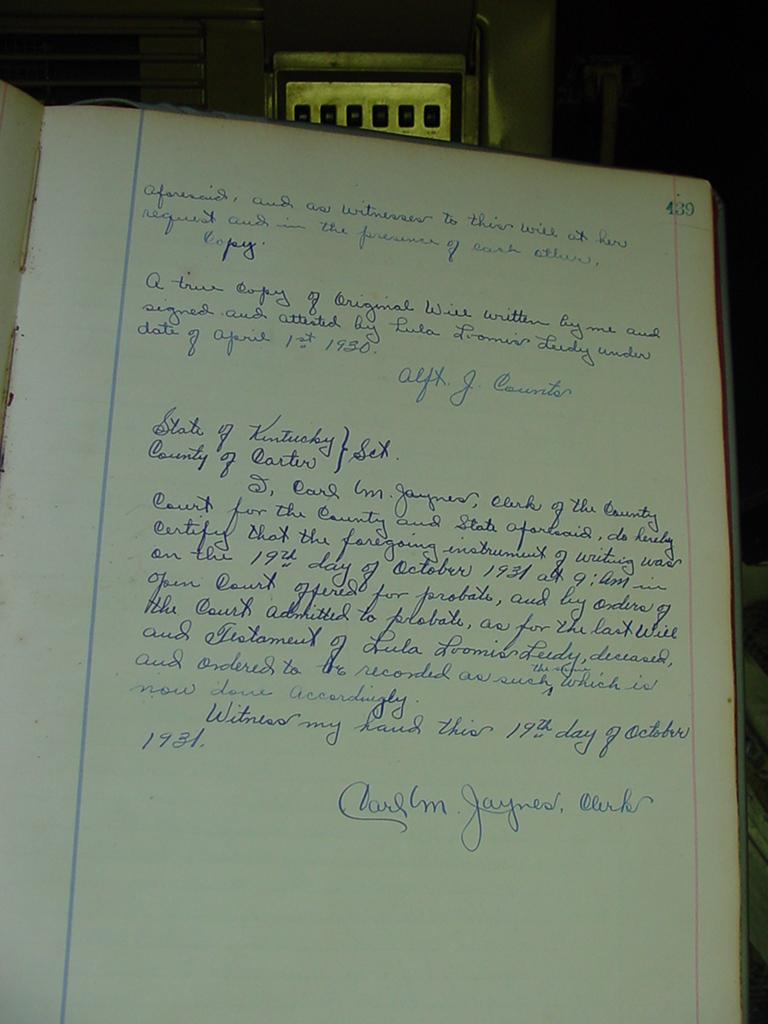 439
aforesaid, and as witnesses to this will at her
request and in the presence of each other.
Copy.
A true Copy of Original Will written by me and
signed and attested by Lula Loomis Leedy under
date of April 1st 1930.
J. Counts
State of Kentucky } Sct.
County of Carter
I, Carl M. Jaynes, Clerk of the County
Court for the County and State aforesaid, do hereby
Certify that the foregoing instrument of writing was
on the 19th day of October 1931 at 9: Am in
Open Court offered for probate, and by orders of
the Court admitted to probate, as for the last Will
and Testament of Lula Loomis Leedy, deceased,
and ordered to be recorded as such, the same which is
now done accordingly.
Witness my hand this 19th day of October
1931.
Carl M. Jaynes, Clerk